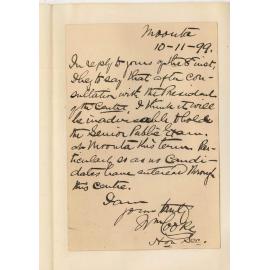 Moonta
10-11-99.
In reply to yours of the 8 inst,
I beg to say that after con-
sultation with the President
of the Centre, I think it will
be inadvisable to hold
the Senior Public Exam.
at Moonta this term. Par-
ticularly so as no Candi-
dates have entered through
this centre.
I am
yours truly
Wm Cooke
Hon Sec.